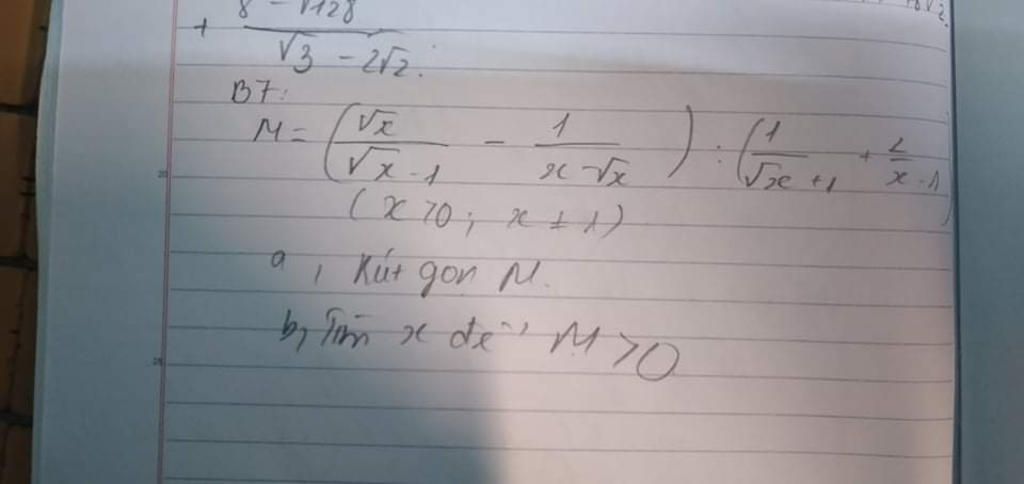 8 - √128
+ ―――
√3 - 2√2.
B7:
M = (√x / (√x - 1) - 1 / (x - √x)) : (1 / (√x + 1) + 2 / (x - 1))
(x > 0; x ≠ 1)
a, Rút gọn M.
b, Tìm x để M > 0